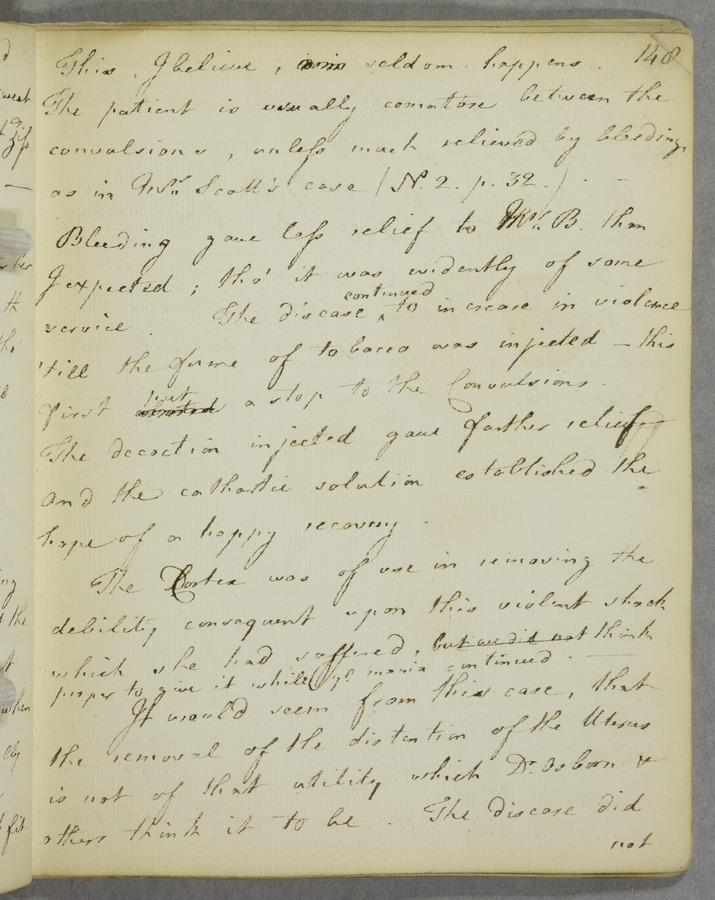 148
This, I believe, seldom happens.
The patient is usually comatose between the
convulsions, unless much relieved by bleeding,
as in Mrs. Scott's case (N. 2. p. 32.) . -
Bleeding gave less relief to Mrs. B. than
I expected; tho' it was evidently of some
service. The disease continued to increase in violence
'till the fume of tobacco was injected - this
first put a stop to the Convulsions.
The decoction injected gave farther relief
and the cathartic solution established the
hope of a happy recovery.
The Cortex was of use in removing the
debility consequent upon this violent shock
which she had suffered, but we did not think
proper to give it while ye mania continued. —
It would seem from this case, that
the removal of the distention of the Uterus
is not of that utility which Dr. Osborn &
others think it to be. The disease did
not